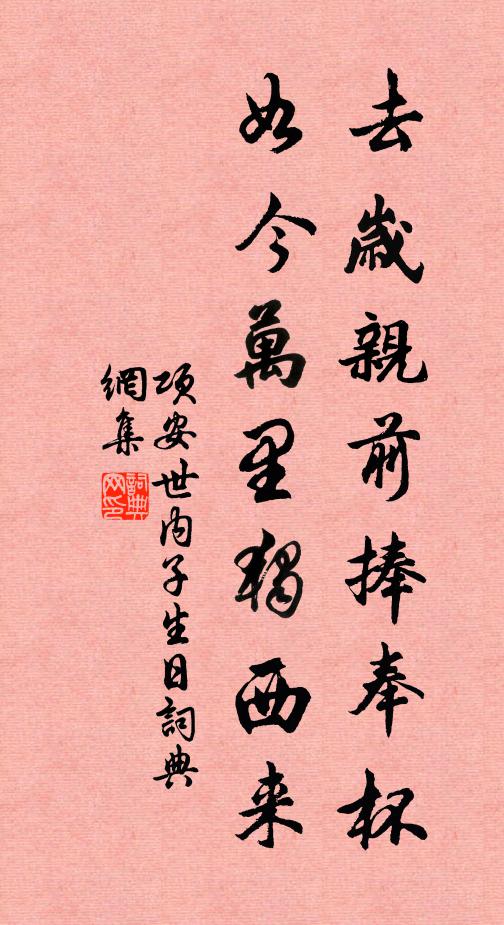 去歲親前捧奉杯
如今萬里獨西来
項安世内子生日詞典
網集
詞典
网印